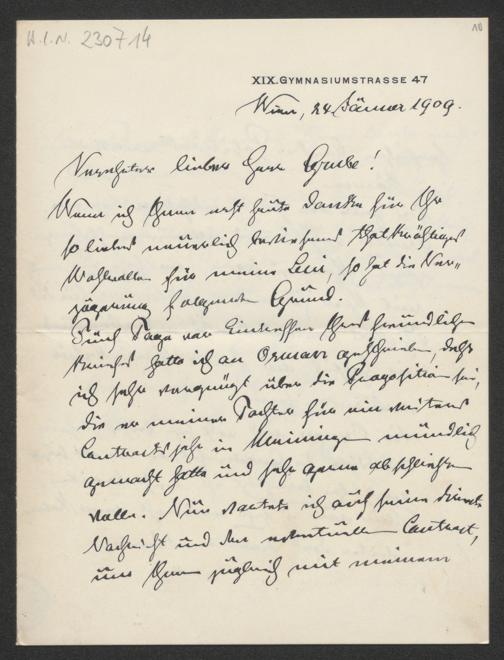 H.I.N. 230714
10
XIX. GYMNASIUMSTRASSE 47
Wien, 24. Jänner 1909.
Verehrter lieber Herr Grube!
Wenn ich Ihnen erst heute danke für Ihr
so liebes neuerlich bewiesenes thatkräftiges
Wohlwollen für meine Leni, so hat die Ver-
zögerung folgenden Grund.
Fünf Tage vor Eintreffen Ihres freundlichen
Briefes hatte ich an geschrieben, daß
ich sehr vergnügt über die Proposition sei,
die er meiner Tochter für ein weiteres
Contractsjahr in Meiningen mündlich
gemacht hatte und sehr gerne abschließen
wolle. Nun wartete ich auf seine directe
Nachricht und den eventuellen Contract,
um Ihnen zugleich mit meinem